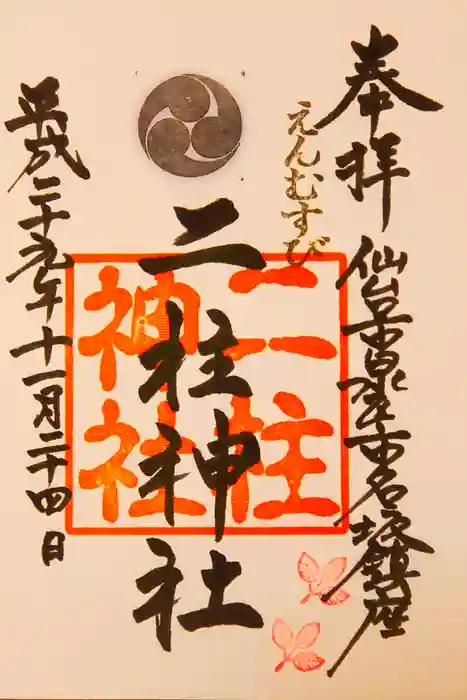 奉拝
仙台市泉区市名坂鎮座
えんむすび
二柱神社
二柱
神社
平成二十九年十一月二十四日